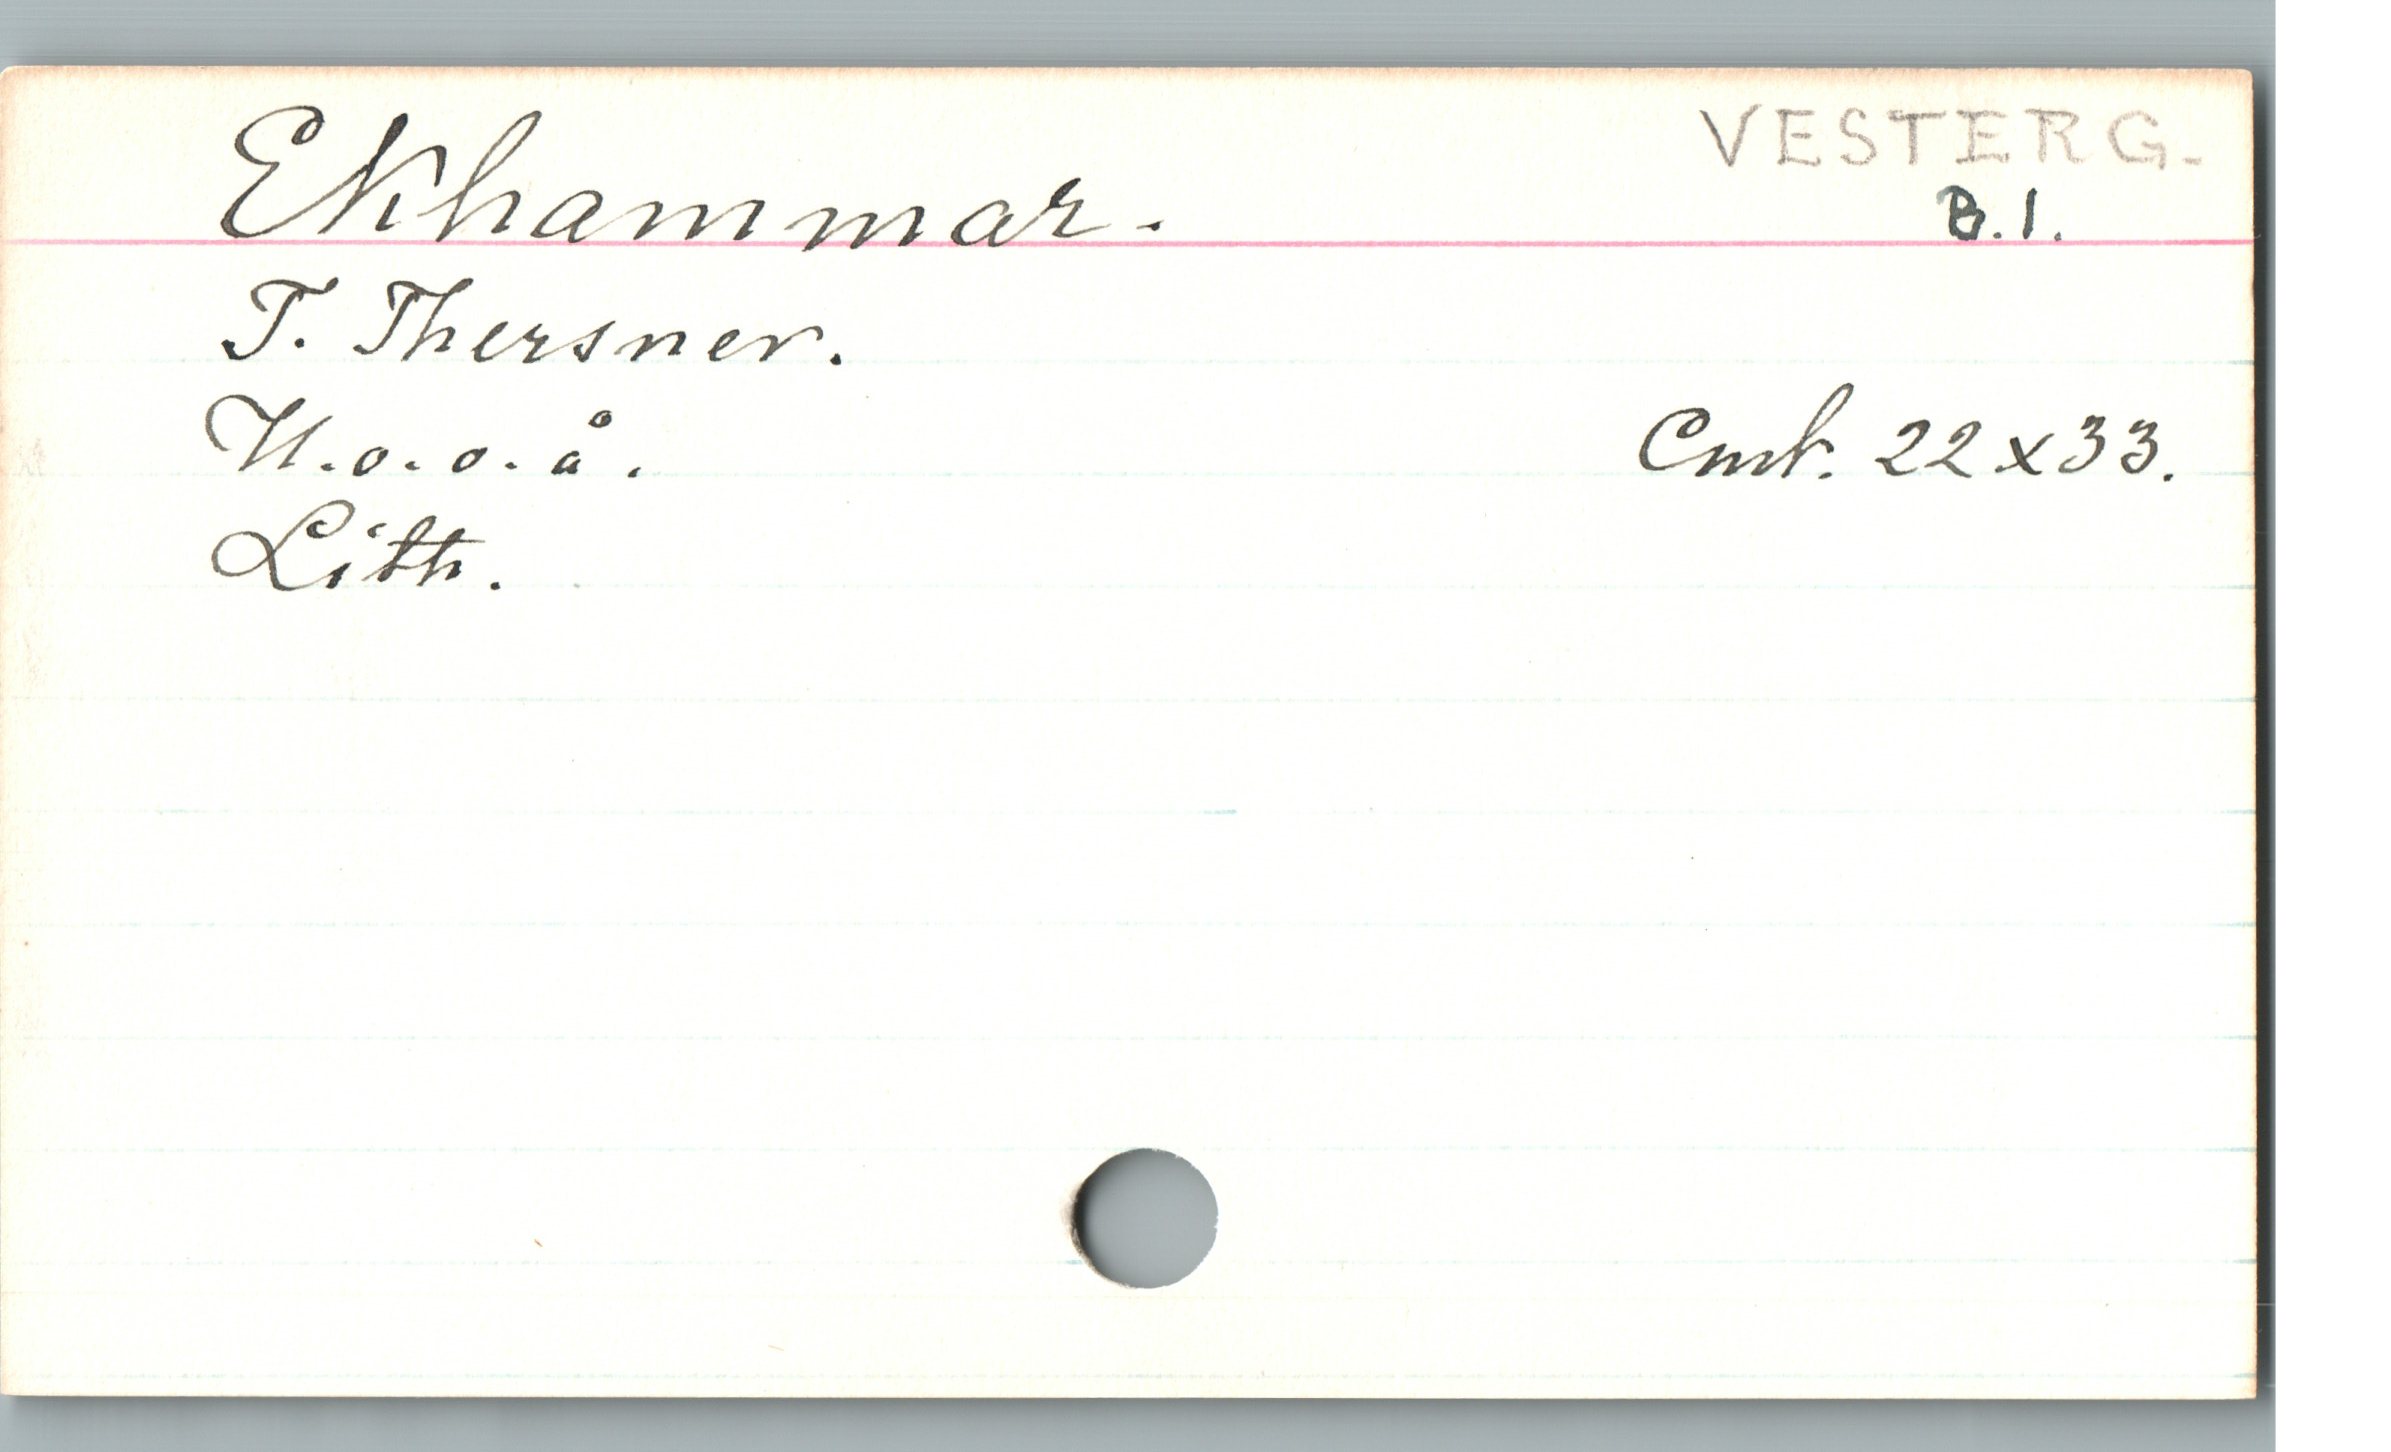 Ekhammar.
VESTERG.
B.1.
T. Thersner.
U.o.o.å.
Cmt. 22x33.
Lith.